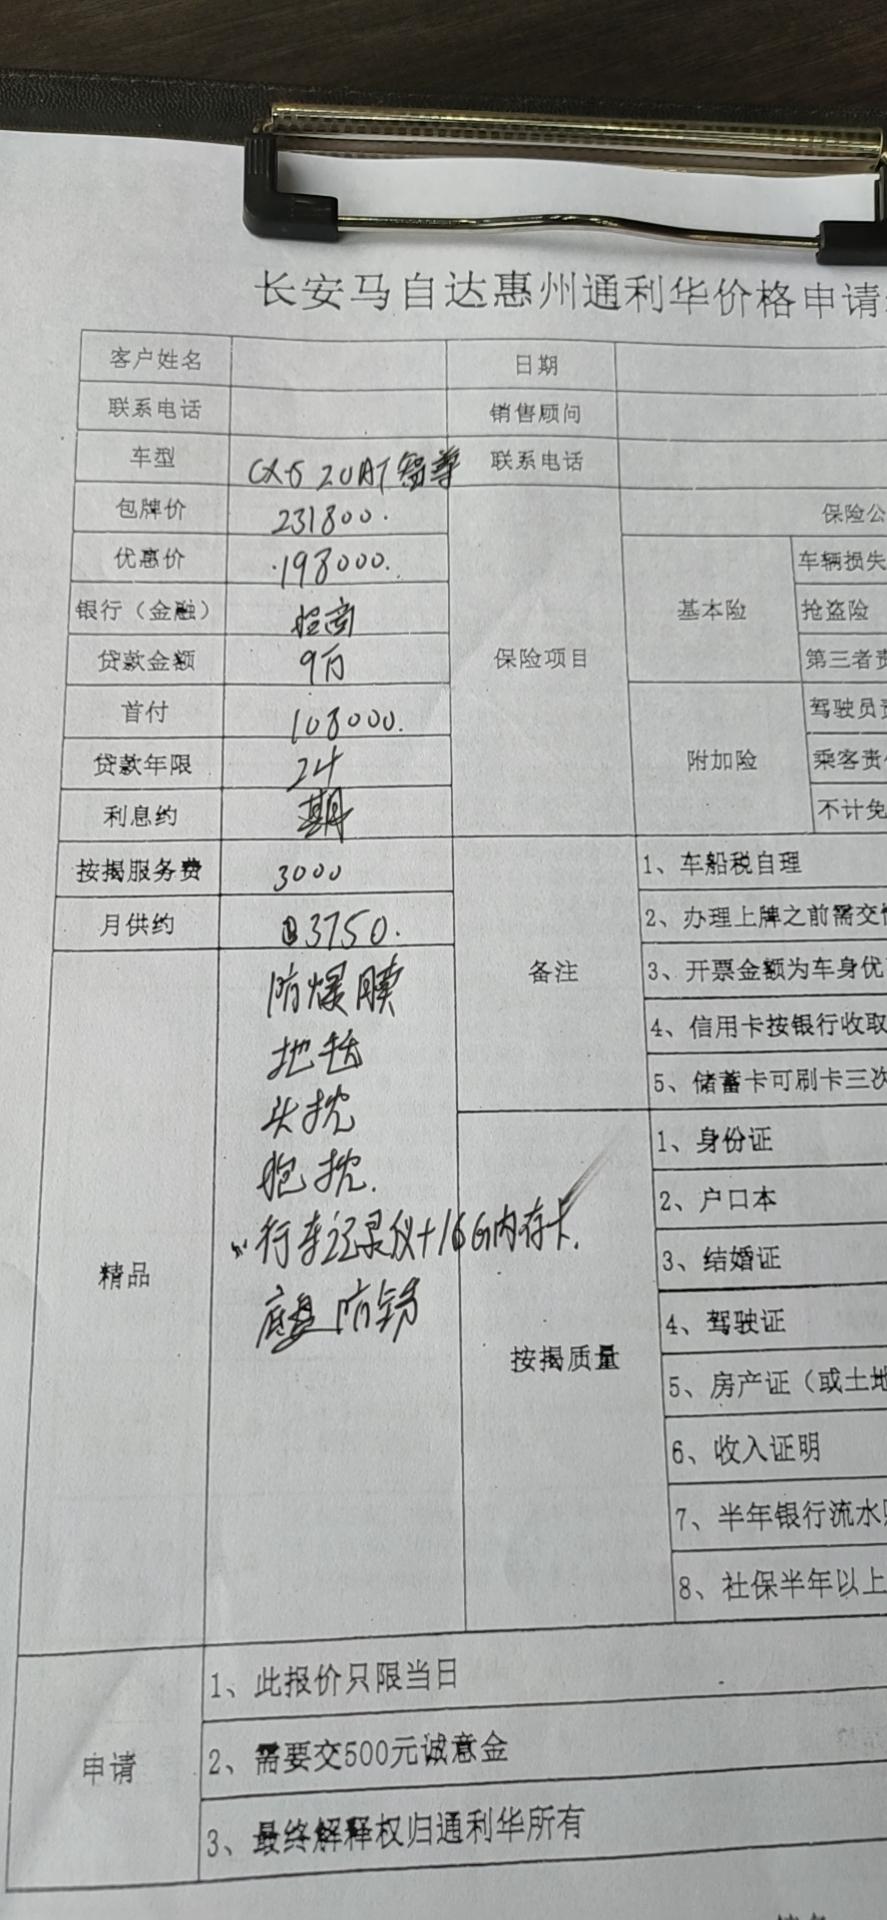 长安马自达惠州通利华价格申请
客户姓名 日期
联系电话 销售顾问
车型 CX-5 2.0AT智尊 联系电话
包牌价 231800. 保险公
优惠价 198000. 车辆损失
银行（金融） 招商 基本险 抢盗险
贷款金额 9万 保险项目 第三者责
首付 108000. 驾驶员责
贷款年限 24 附加险 乘客责任
利息约 期 不计免
按揭服务费 3000 1、车船税自理
月供约 3750. 2、办理上牌之前需交
备注 3、开票金额为车身优
4、信用卡按银行收取
5、储蓄卡可刷卡三次
精品
防爆膜
地毯
头枕
抱枕.
行车记录仪+16G内存卡.
底盘防锈
按揭质量
1、身份证
2、户口本
3、结婚证
4、驾驶证
5、房产证（或土地
6、收入证明
7、半年银行流水
8、社保半年以上
申请
1、此报价只限当日
2、需要交500元诚意金
3、最终解释权归通利华所有